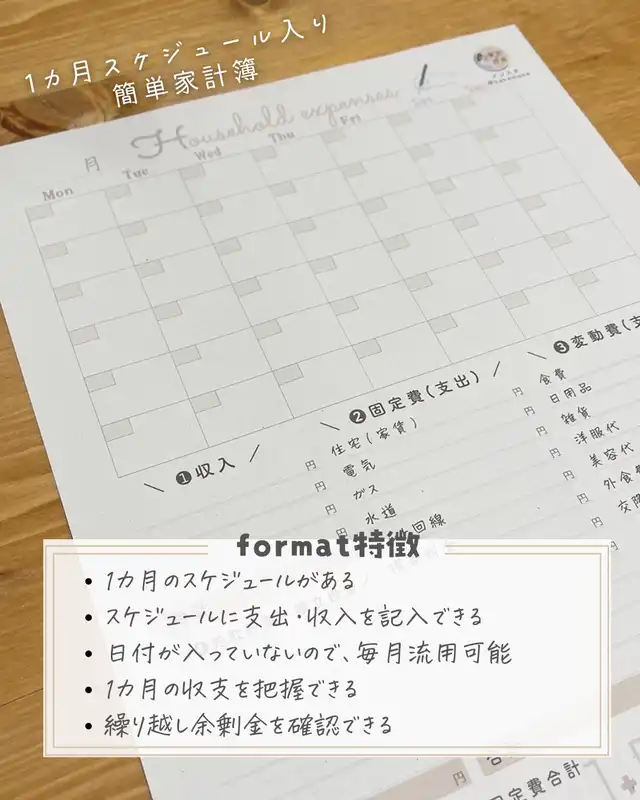 1カ月スケジュール入り
簡単家計簿
月
Household expenses
Mon
Tue
Wed
Thu
Fri
❶収入
❷固定費(支出)
円
住宅(家賃)
円
電気
円
ガス
円
水道
回線
❸変動費(支
円
食費
円
日用品
円
雑貨
円
洋服代
円
美容代
外食
交際
format特徴
• 1カ月のスケジュールがある
• スケジュールに支出・収入を記入できる
• 日付が入っていないので、毎月流用可能
• 1カ月の収支を把握できる
• 繰り越し余剰金を確認できる
円
定費合計
+